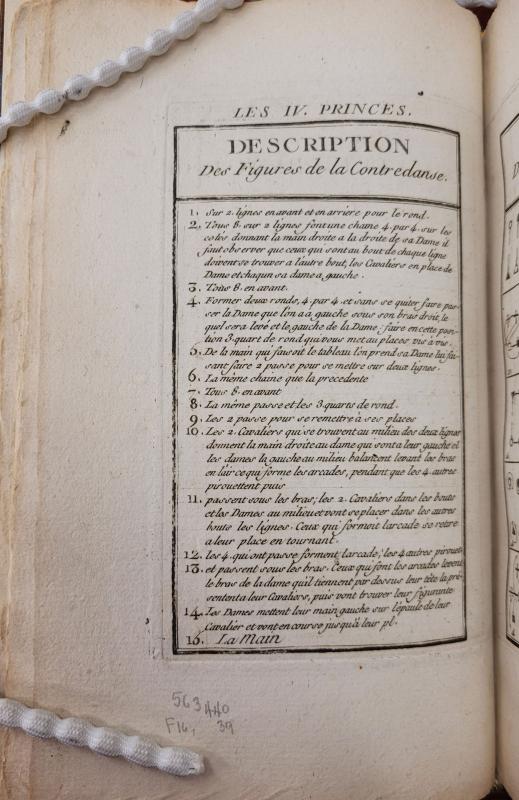 LES IV. PRINCES.
DESCRIPTION
Des Figures de la Contredanse.
1. Sur 2. lignes en avant et en arriere pour le rond.
2. Tous 8. sur 2 lignes font une chaine 4. par 4. sur les
cotés donnant la main droite a la droite de sa Dame il
faut observer que ceux qui sont au bout de chaque ligne
doivent se trouver a l'autre bout, les Cavaliers en place de
Dame et chaqun sa dame a gauche.
3. Tous 8. en avant.
4. Former deux ronds, 4. par 4. et sans se quiter faire pas-
ser la Dame que l'on a a gauche sous son bras droit, le
quel sera levé et le gauche de la Dame; faire en cette posi-
tion 3. quart de rond qui vous met au places vis à vis.
5. De la main qui faisoit le tableau l'on prend sa Dame lui fai-
sant faire 2 passe pour se mettre sur deux lignes.
6. La même chaine que la precedente
7. Tous 8. en avant
8. La même passe et les 3. quarts de rond.
9. Les 2 passe pour se remettre à ses places
10. Les 2. Cavaliers qui se trouvent au milieu des deux lignes
donnent la main droite au dame qui sont a leur gauche et
les dames la gauche au milieu balancent levant les bras
en l'air ce qui forme les arcades, pendant que les 4 autres
pirouettent puis
11. passent sous les bras; les 2. Cavaliers dans les bouts
et les Dames au milieu et vont se placer dans les autres
bouts les lignes. Ceux qui forment l'arcade se retire
a leur place en tournant.
12. les 4. qui ont passe forment l'arcade, les 4 autres pirouet
13. et passent sous les bras. Ceux qui font les arcades levent
le bras de la dame qu'il tiennent par dessus leur tête la pré-
sentent a leur Cavaliers, puis vont trouver leur figurante
14. Les Dames mettent leur main gauche sur l'épaule de leur
Cavalier et vont en course jusqu'à leur pl.
15. La Main
563440
F16, 39